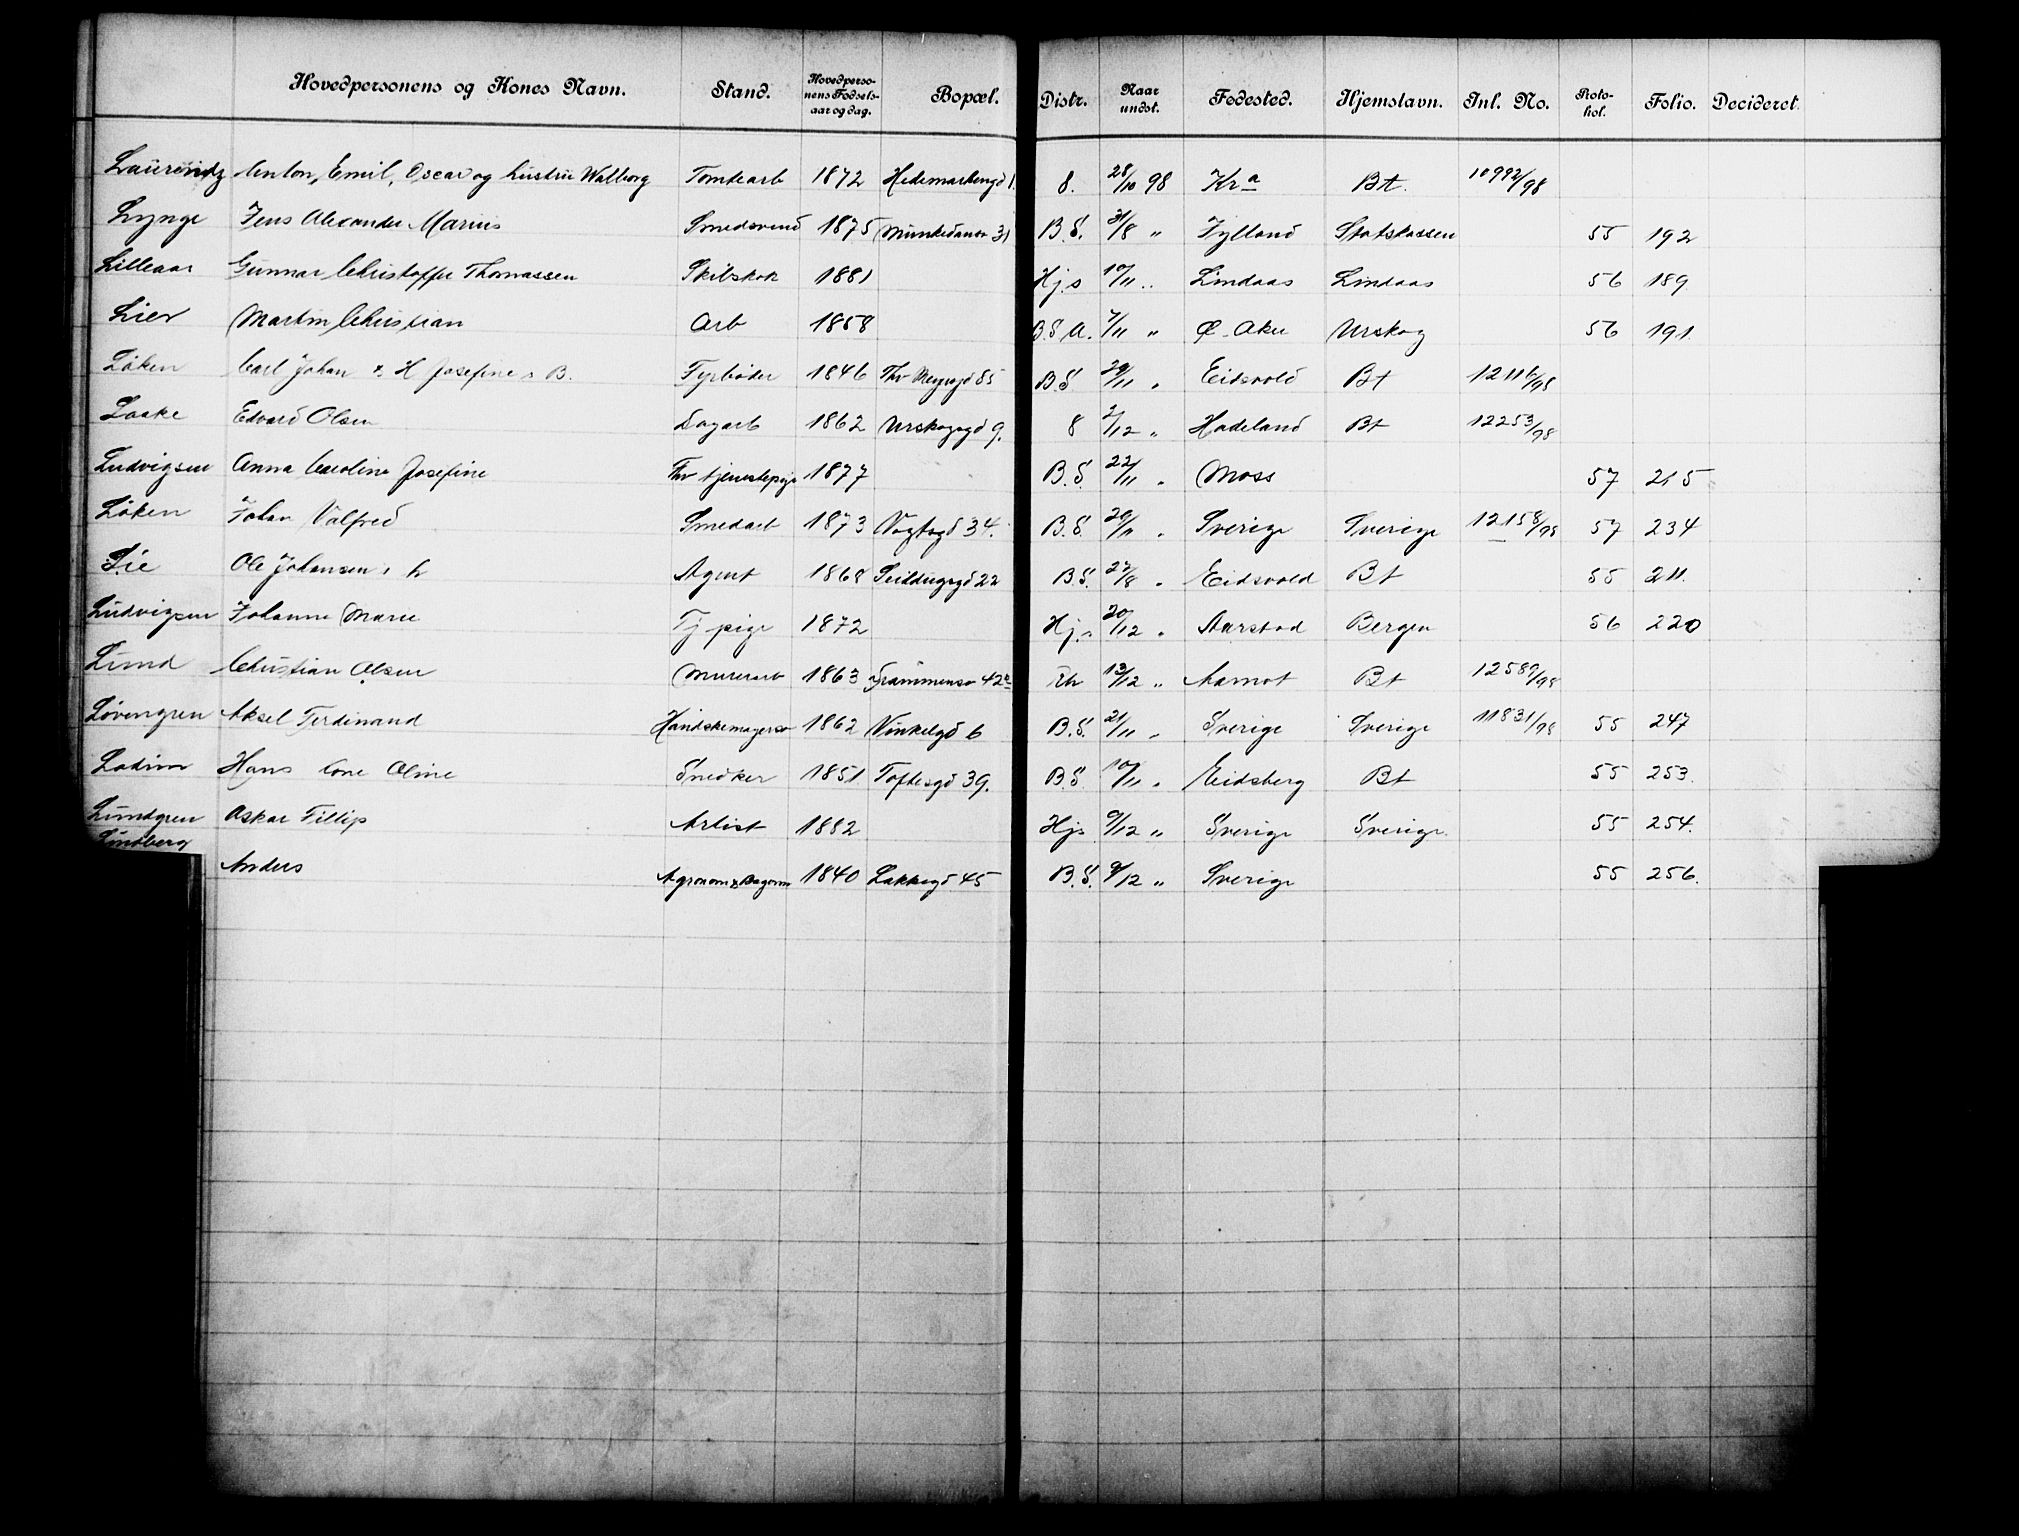 Hovedpersonens og Kones Navn. Stand. Hovedperso-nens Fødsels-aar og dag. Bopæl. Distr. Naar undst. Fødested. Hjemstavn. Inl. No. Proto-kol. Folio. Decideret.
Laurentz Anton, Emil, Oscar og hustru Walborg Tomtearb 1872 Hedemarkengd 1. 8. 28/10 98 Kr a Bt. 10992/98
Lynge Jens Alexander Marius Smedsvend 1875 Munkedamsv 31 B.S. 31/8 " Jylland Statskassen 55 192
Lilleaas Gunnar Christoffer Thomassen Skibskok 1881 Hjs 10/11 " Lindaas Lindaas 56 189
Lier Martin Christian Arb 1858 B.S.A. 7/11 " Ø. Aker Urskog 56 191
Løken Carl Johan & H Josefine B. Fyrbøder 1846 Thv Meyersgd 85 B.S 29/11 " Eidsvold Bt 12116/98
Laake Edvard Olsen Dagarb 1862 Urskogsgd 9. 8 2/12 " Hadeland Bt 12253/98
Ludvigsen Anna Caroline Josefine Thv tjenestepige 1877 B.S. 22/11 " Moss 57 215
Løken Johan Valfred Smedarb 1873 Vogtsgd 34. B.S. 29/11 " Sverige Sverige 12158/98 57 234
Lie Ole Johansen & h Agent 1868 Seildugsgd 22 B.S. 27/8 " Eidsvold Bt 55 211.
Ludvigsen Johanne Marie Tj pige 1872 Hjs 20/12 " Aarstad Bergen 56 220
Lund Christian Olsen Murerarb 1863 Drammensv 42 Rh 13/12 " Aamot Bt 12589/98
Løvengren Aksel Ferdinand Handskemagersv 1862 Vinkelgd 6 B.S. 21/11 " Sverige Sverige 11831/98 55 247
Hans Cone Oline Snedker 1851. Toftesgd 39. B.S 10/11 " Eidsberg Bt 55 253.
Lundgren Oskar Fillip Artist 1882 Hjs 9/12 " Sverige Sverige. 55 254.
Lindberg Anders Agronom & Bogorm 1840 Lakkegd 45 B.S. 9/12 " Sverige 55 256.